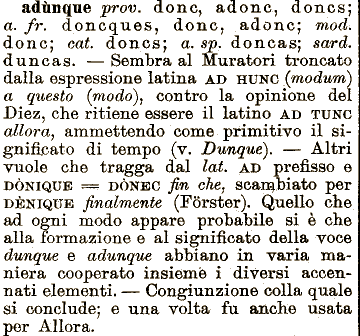 adùnque prov. donc, adonc, doncs;
a. fr. doncques, donc, adonc; mod.
donc; cat. doncs; a. sp. doncas; sard.
duncas. — Sembra al Muratori troncato
dalla espressione latina AD HUNC (modum)
a questo (modo), contro la opinione del
Diez, che ritiene essere il latino AD TUNC
allora, ammettendo come primitivo il si-
gnificato di tempo (v. Dunque). — Altri
vuole che tragga dal lat. AD prefisso e
DÒNIQUE = DÒNEC fin che, scambiato per
DÈNIQUE finalmente (Förster). Quello che
ad ogni modo appare probabile si è che
alla formazione e al significato della voce
dunque e adunque abbiano in varia ma-
niera cooperato insieme i diversi accen-
nati elementi. — Congiunzione colla quale
si conclude; e una volta fu anche usata
per Allora.